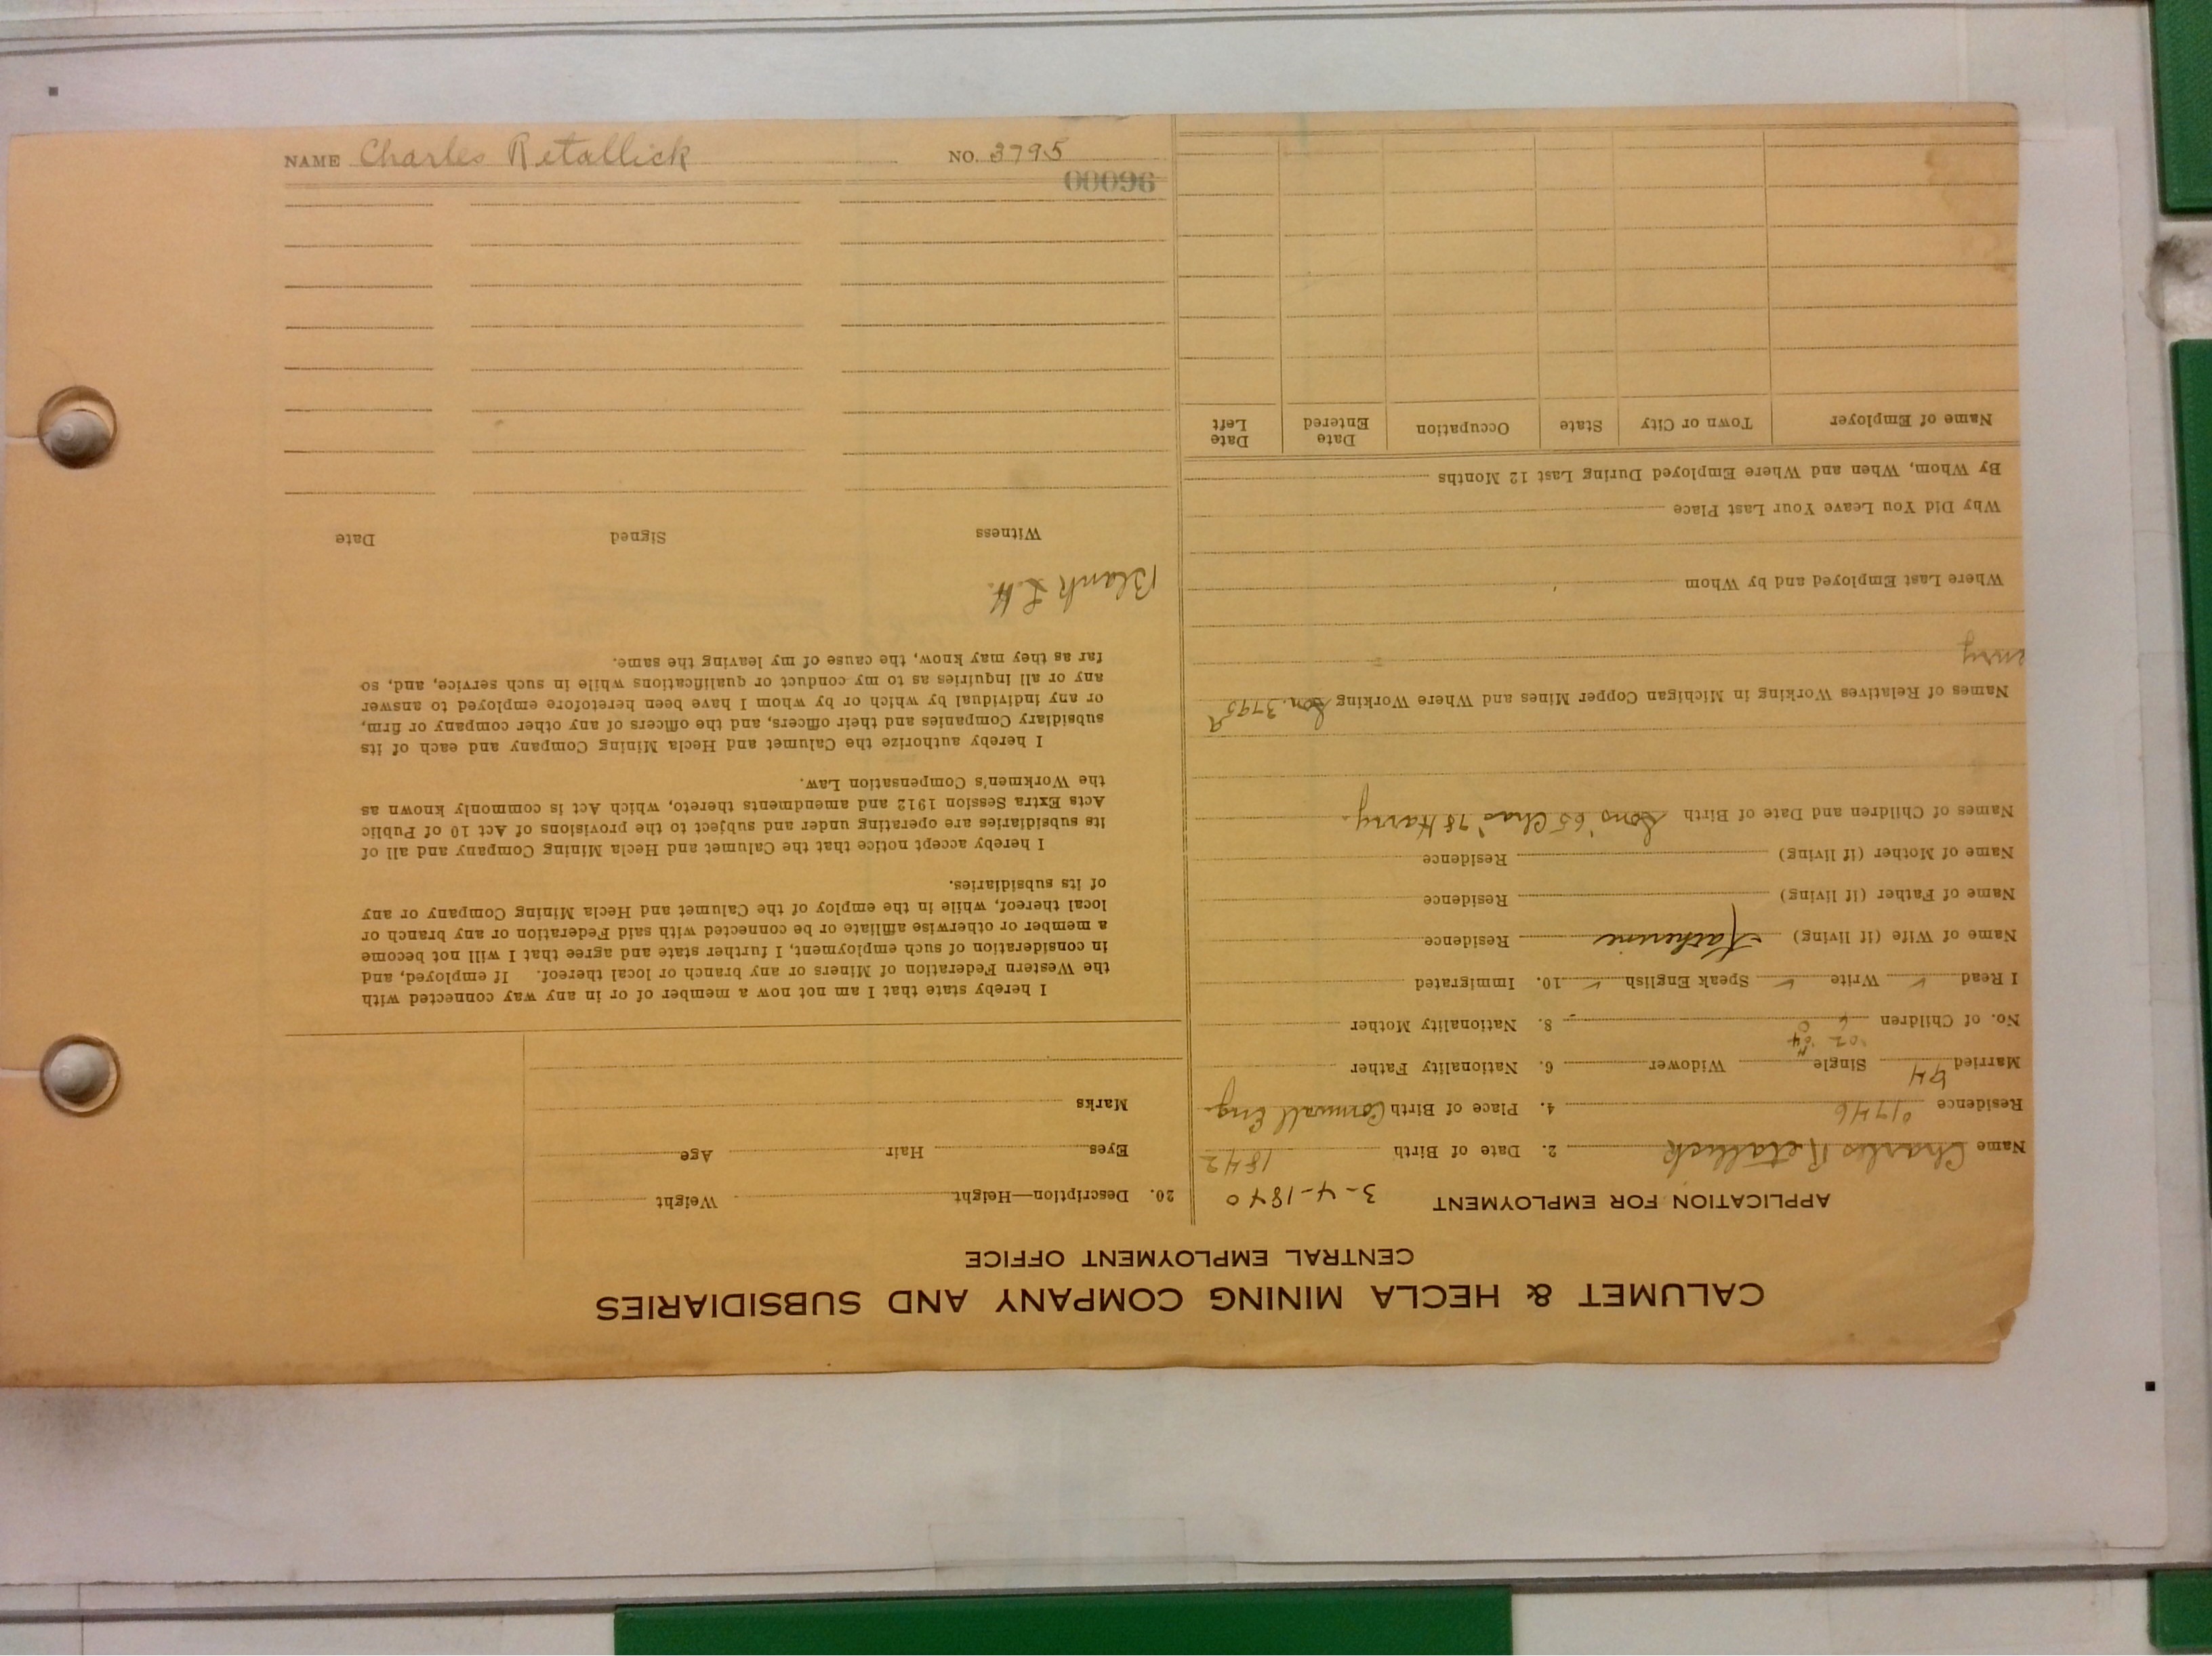 NAME Charles Retallick NO. 3795
00096
CALUMET & HECLA MINING COMPANY AND SUBSIDIARIES
CENTRAL EMPLOYMENT OFFICE
APPLICATION FOR EMPLOYMENT 3-4-1840
Name Charles Retallick 2. Date of Birth 1842
Residence 4. Place of Birth Cornwall Eng.
Married Single Widower 6. Nationality Father
'02 '04
No. of Children 8. Nationality Mother
I Read ✓ Write ✓ Speak English ✓ 10. Immigrated
Name of Wife (if living) Katherine Residence
Name of Father (if living) Residence
Name of Mother (if living) Residence
Names of Children and Date of Birth Sons '65 Chas '78 Harry.
Names of Relatives Working in Michigan Copper Mines and Where Working Son. 3795
Where Last Employed and by Whom
Why Did You Leave Your Last Place
By Whom, When and Where Employed During Last 12 Months
Name of Employer Town or City State Occupation Date Entered Date Left
20. Description—Height Weight
Eyes Hair Age
Marks
I hereby state that I am not now a member of or in any way connected with
the Western Federation of Miners or any branch or local thereof. If employed, and
in consideration of such employment, I further state and agree that I will not become
a member or otherwise affiliate or be connected with said Federation or any branch or
local thereof, while in the employ of the Calumet and Hecla Mining Company or any
of its subsidiaries.
I hereby accept notice that the Calumet and Hecla Mining Company and all of
its subsidiaries are operating under and subject to the provisions of Act 10 of Public
Acts Extra Session 1912 and amendments thereto, which Act is commonly known as
the Workmen's Compensation Law.
I hereby authorize the Calumet and Hecla Mining Company and each of its
subsidiary Companies and their officers, and the officers of any other company or firm,
or any individual by which or by whom I have been heretofore employed to answer
any or all inquiries as to my conduct or qualifications while in such service, and, so
far as they may know, the cause of my leaving the same.
Blank
Witness Signed Date